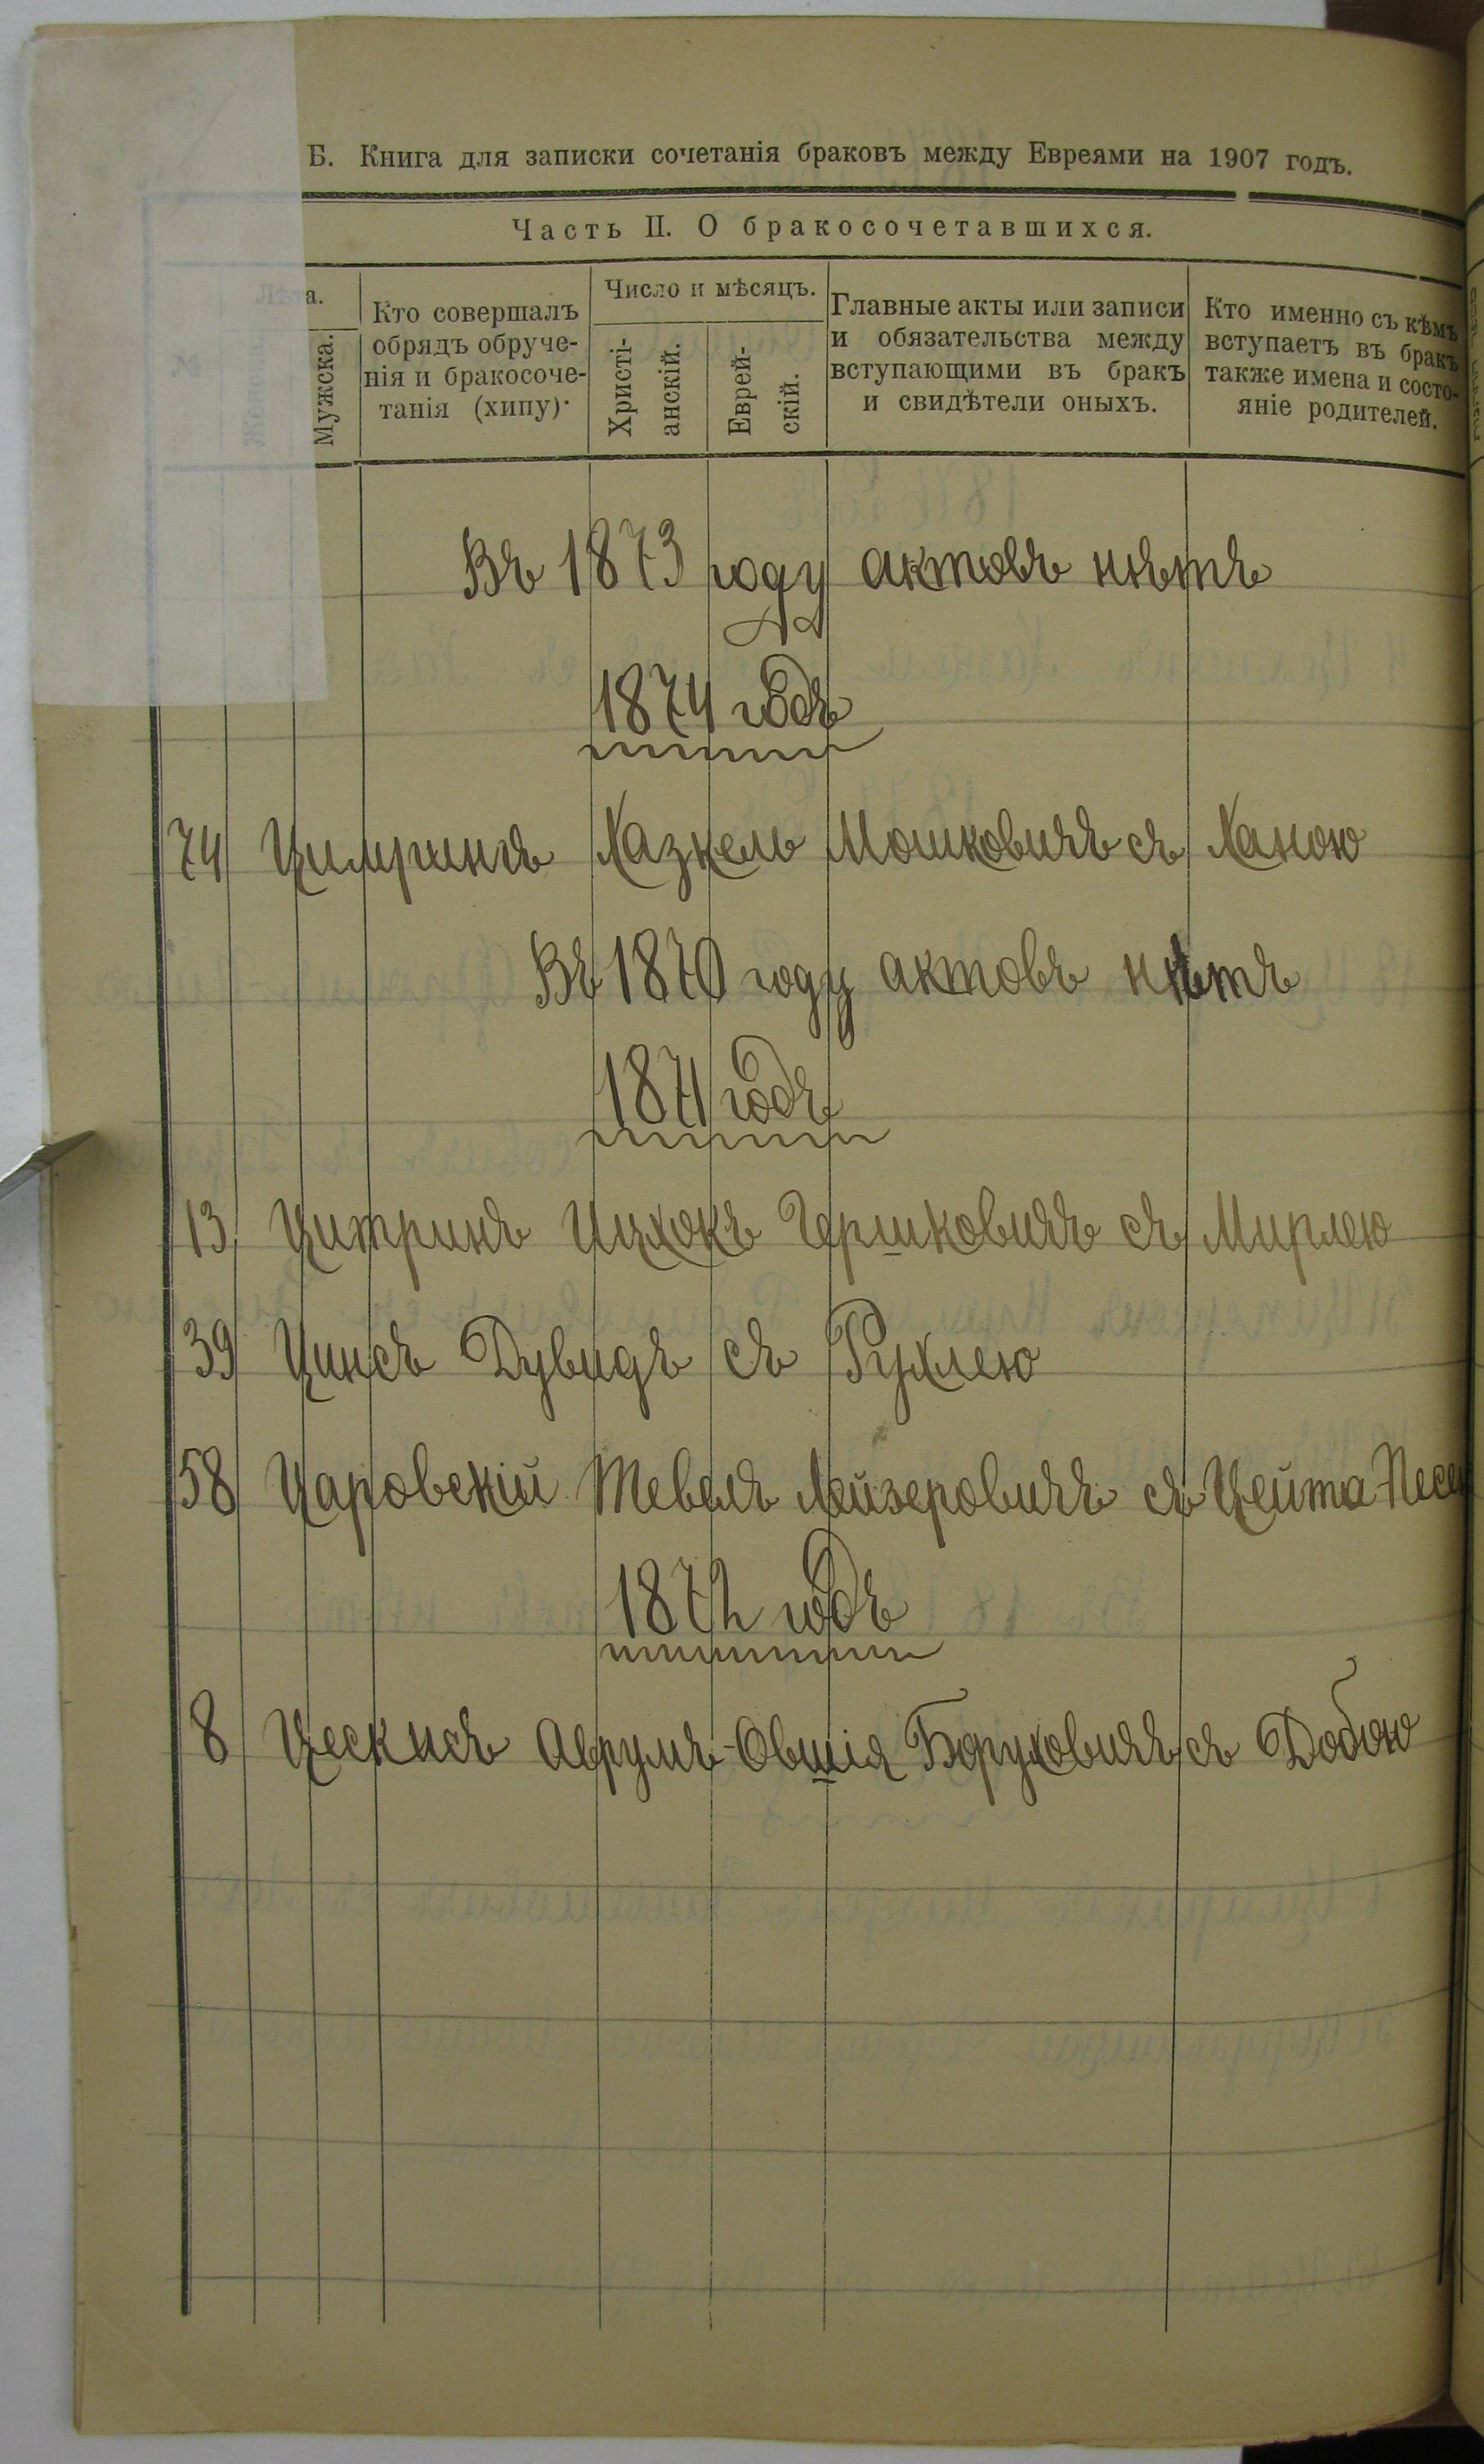 Б. Книга для записки сочетанія браковъ между Евреями на 1907 годъ.
Часть II. О бракосочетавшихся.
Лѣта.
Мужска.
Кто совершалъ
обрядъ обруче-
нія и бракосоче-
танія (хипу).
Число и мѣсяцъ.
Христі-
анскій.
Еврей-
скій.
Главные акты или записи
и обязательства между
вступающими въ бракъ
и свидѣтели оныхъ.
Кто именно съ кѣмъ
вступаетъ въ бракъ
также имена и состо-
яніе родителей.
Въ 1873 году актовъ нѣтъ
1874 годъ
74 Цимринъ Хазкель Мошковичъ съ Ханою
Въ 1870 году актовъ нѣтъ
1871 годъ
13 Цитринъ Ицхокъ Гершковичъ съ Мирлею
39 Цинсъ Дувидъ съ Рухлею
58 Царовскій Тевель Лейзеровичъ съ Цейта-Песею
1872 годъ
8 Цескисъ Аврумъ-Овшія Боруховичъ съ Добою